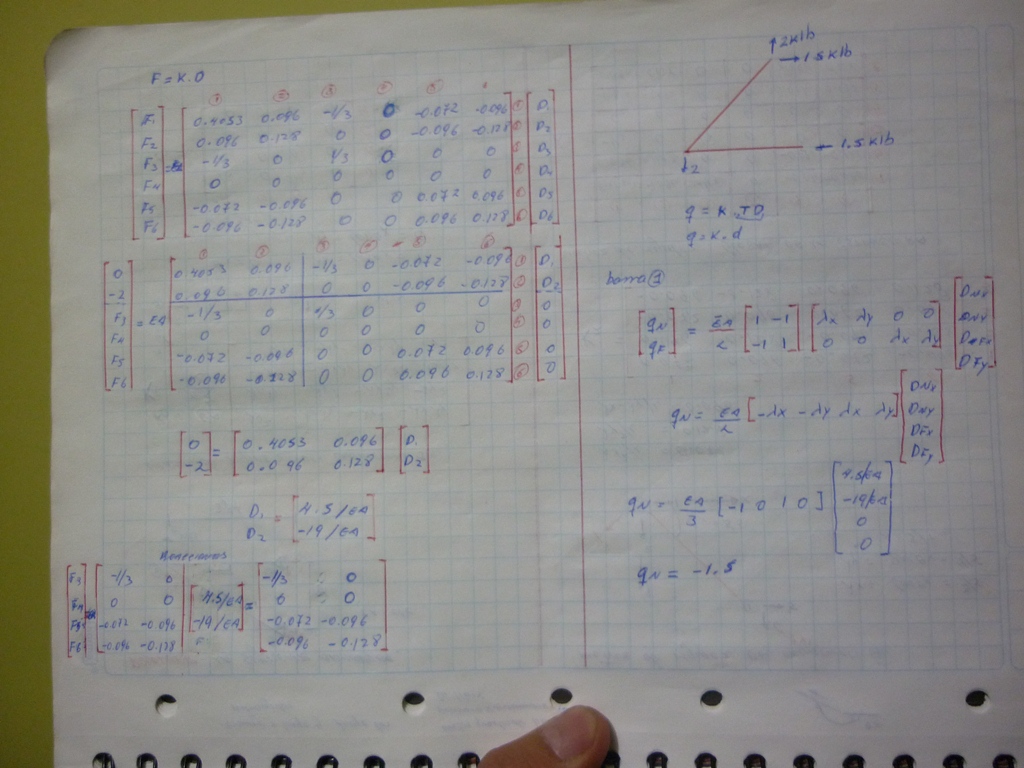 F = K.D
① ② ③
F1 0.4053 0.096 -1/3 0 -0.072 -0.096 D1
F2 0.096 0.128 0 0 -0.096 -0.128 D2
F3 = EA -1/3 0 1/3 0 0 0 D3
F4 0 0 0 0 0 0 D4
F5 -0.072 -0.096 0 0 0.072 0.096 D5
F6 -0.096 -0.128 0 0 0.096 0.128 D6
0 0.4053 0.096 -1/3 0 -0.072 -0.096 D1
-2 0.096 0.128 0 0 -0.096 -0.128 D2
F3 = EA -1/3 0 1/3 0 0 0 0
F4 0 0 0 0 0 0 0
F5 -0.072 -0.096 0 0 0.072 0.096 0
F6 -0.096 -0.128 0 0 0.096 0.128 0
0 = 0.4053 0.096 D1
-2 0.096 0.128 D2
D1 = 4.5/EA
D2 -19/EA
Reacciones
F3 -1/3 0 -1/3 0
F4 0 0 4.5/EA = 0 0
F5 -0.072 -0.096 -19/EA -0.072 -0.096
F6 -0.096 -0.128 F -0.096 -0.128
2klb
1.5klb
1.5klb
2
q = K.TD
q = K.d
barra ①
qN = EA/L 1 -1 λx λy 0 0 DNx
qF -1 1 0 0 λx λy DNy
DFx
DFy
qN = EA/L [-λx -λy λx λy] DNx
DNy
DFx
DFy
qN = EA/3 [-1 0 1 0] 4.5/EA
-19/EA
0
0
qN = -1.5